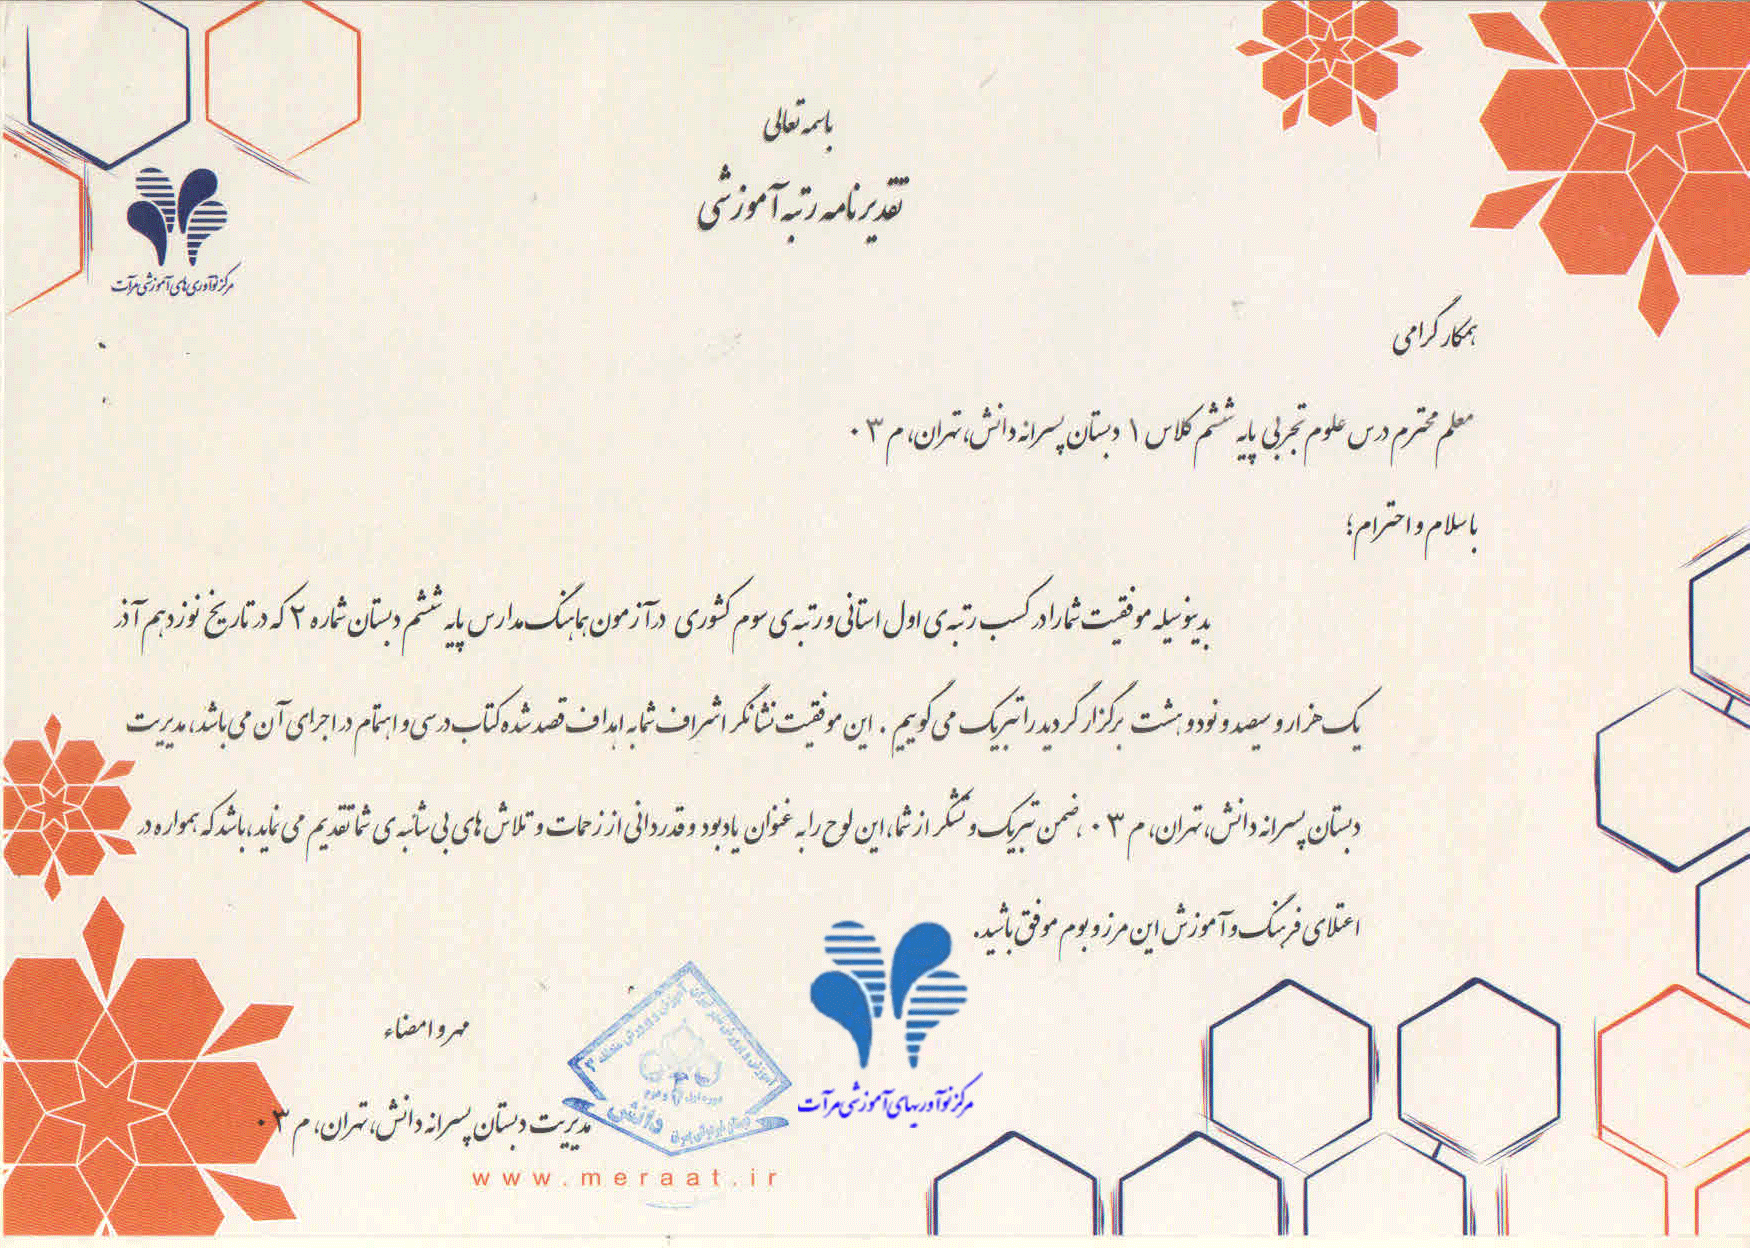 باسمه تعالی
تقدیرنامه رتبه آموزشی
مرکز نوآوری های آموزشی مرآت
همکار گرامی
معلم محترم درس علوم تجربی پایه ششم کلاس ۱ دبستان پسرانه دانش، تهران، م ۰۳
با سلام و احترام؛
بدینوسیله موفقیت شما را در کسب رتبه ی اول استانی و رتبه ی سوم کشوری در آزمون هماهنگ مدارس پایه ششم دبستان شماره ۲ که در تاریخ نوزدهم آذر
یک هزار و سیصد و نود و هشت برگزار گردید را تبریک می گوییم . این موفقیت نشانگر اشراف شما به اهداف قصد شده کتاب درسی و اهتمام در اجرای آن می باشد، مدیریت
دبستان پسرانه دانش، تهران، م ۰۳ ،ضمن تبریک و تشکر از شما، این لوح را به عنوان یادبود و قدردانی از زحمات و تلاش های بی شائبه ی شما تقدیم می نماید، باشد که همواره در
اعتلای فرهنگ و آموزش این مرز و بوم موفق باشید.
مهر و امضاء
مدیریت دبستان پسرانه دانش، تهران، م ۰۳
آموزش و پرورش شهر تهران
آموزش و پرورش منطقه ۳
دوره اول و دوم
دانش
مرکز نوآوریهای آموزشی مرآت
www.meraat.ir